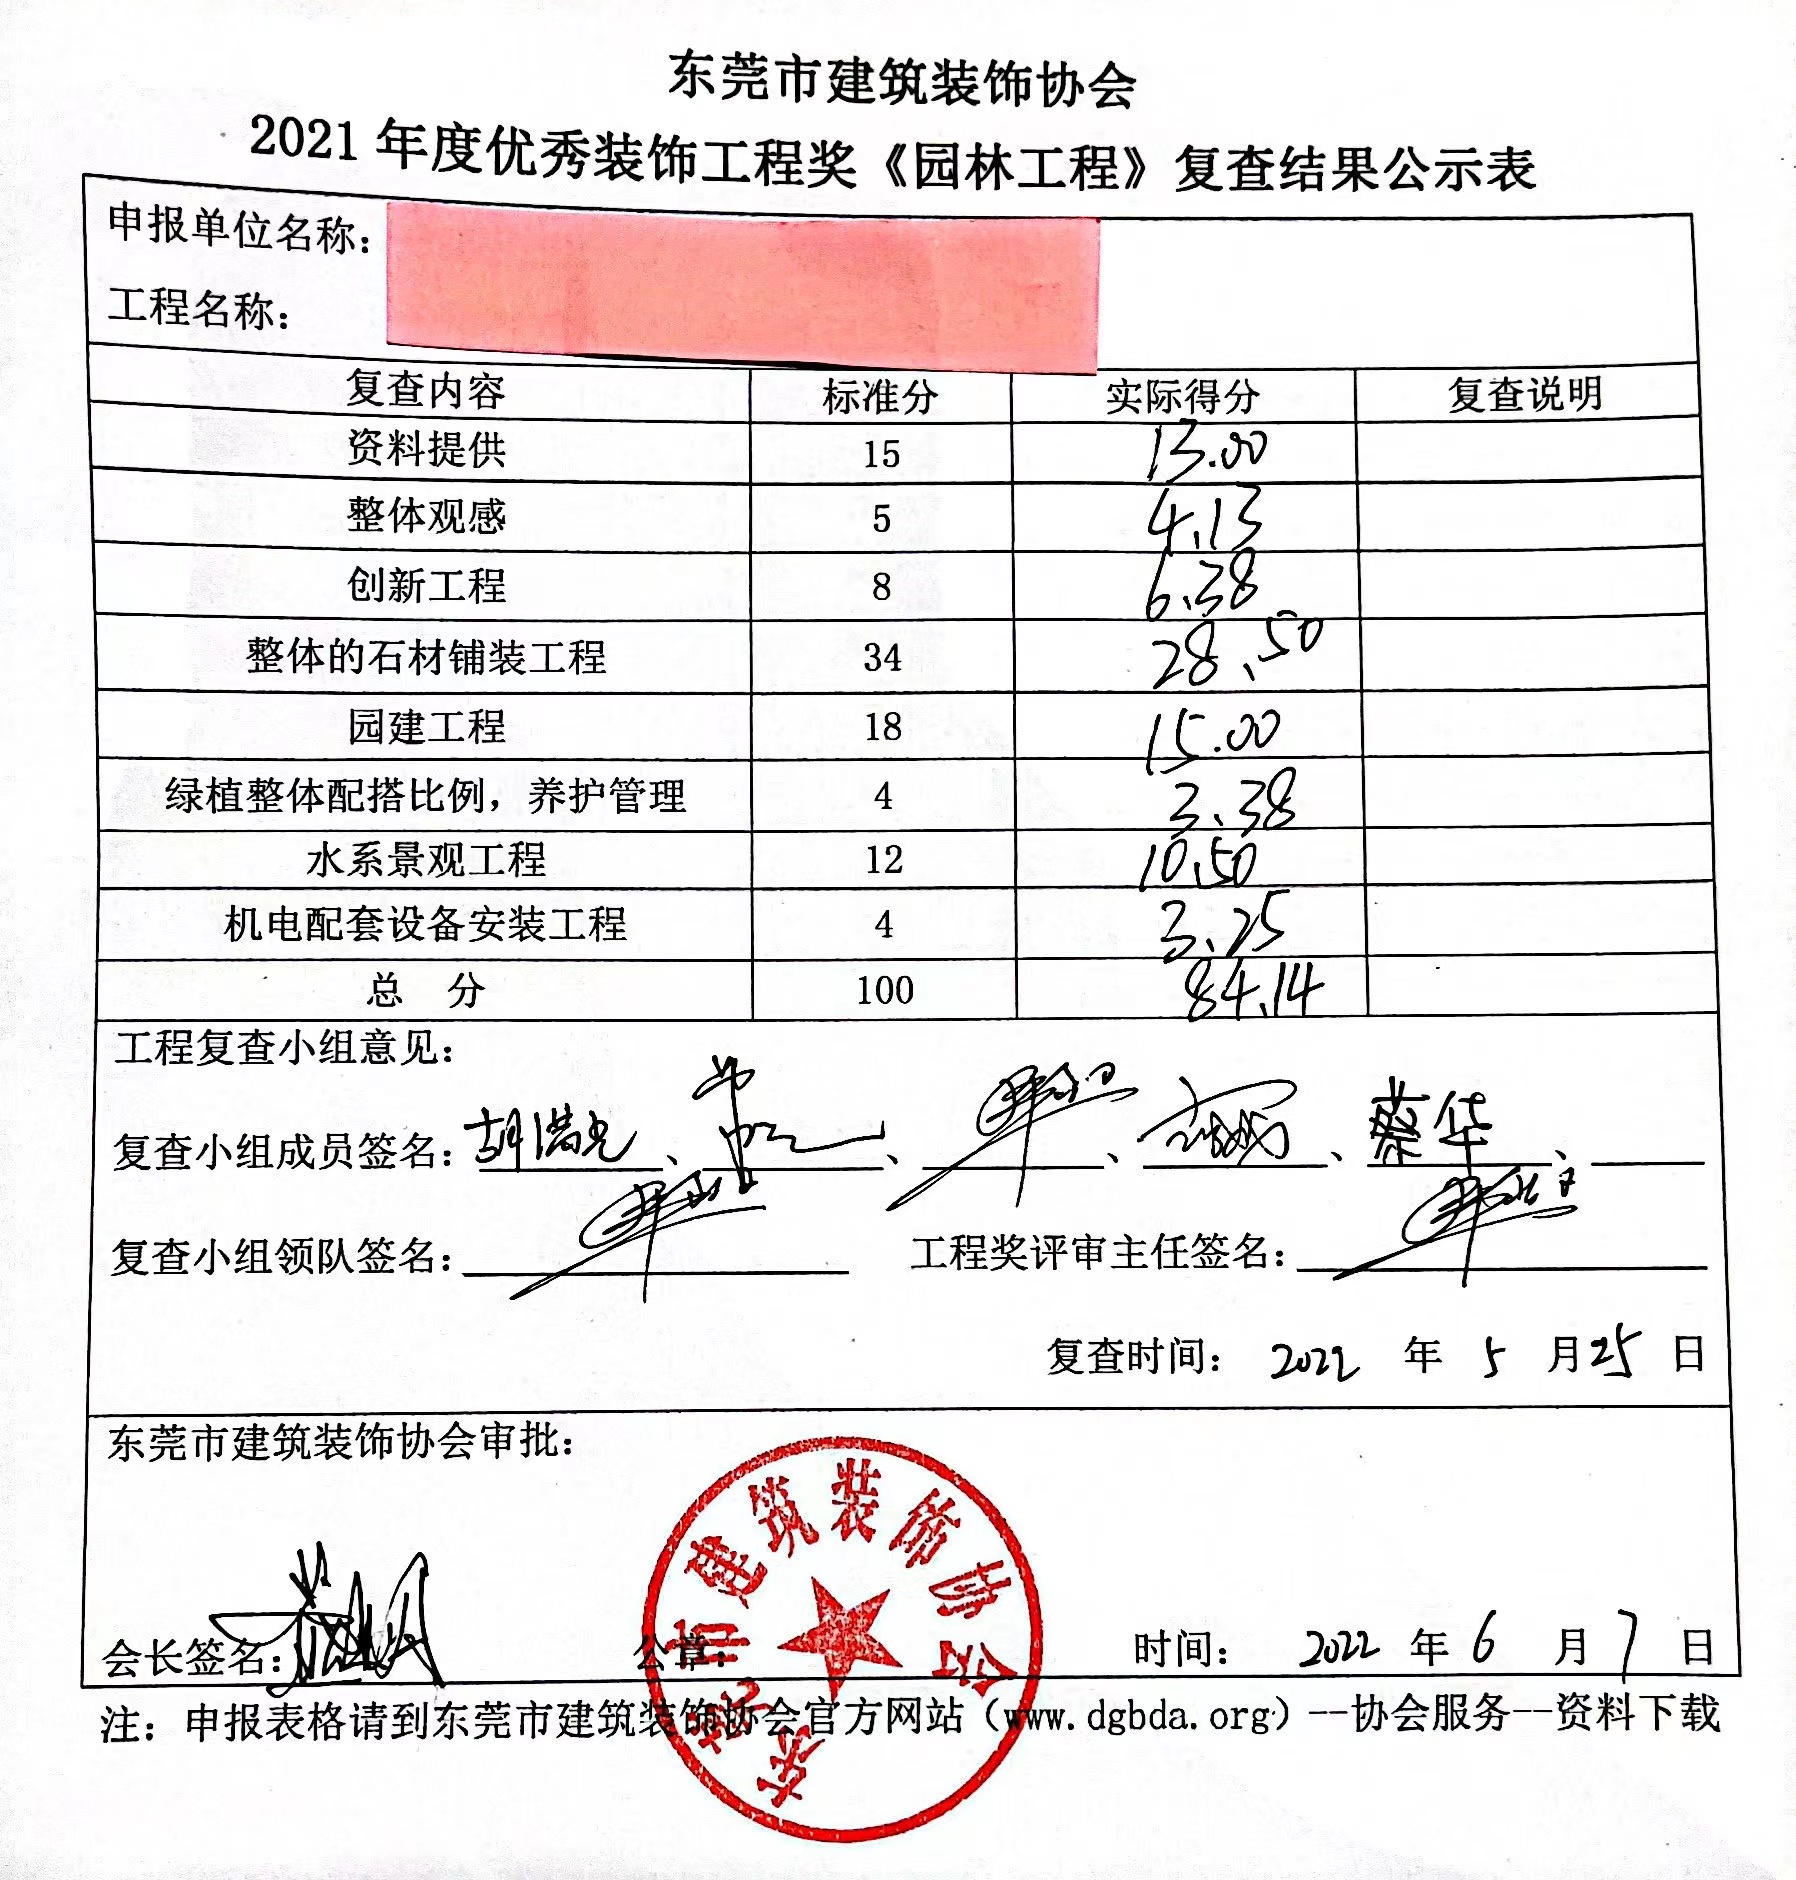 东莞市建筑装饰协会
2021 年度优秀装饰工程奖《园林工程》复查结果公示表
申报单位名称：
工程名称：
复查内容 标准分 实际得分 复查说明
资料提供 15 13.00
整体观感 5 4.13
创新工程 8 6.38
整体的石材铺装工程 34 28.50
园建工程 18 15.00
绿植整体配搭比例，养护管理 4 3.38
水系景观工程 12 10.50
机电配套设备安装工程 4 3.25
总 分 100 84.14
工程复查小组意见：
复查小组成员签名：胡满光、、、、蔡华、
复查小组领队签名： 工程奖评审主任签名：
复查时间： 2022 年 5 月 25 日
东莞市建筑装饰协会审批：
会长签名： 公章： 时间： 2022 年 6 月 7 日
东莞市建筑装饰协会
注：申报表格请到东莞市建筑装饰协会官方网站（www.dgbda.org）--协会服务--资料下载